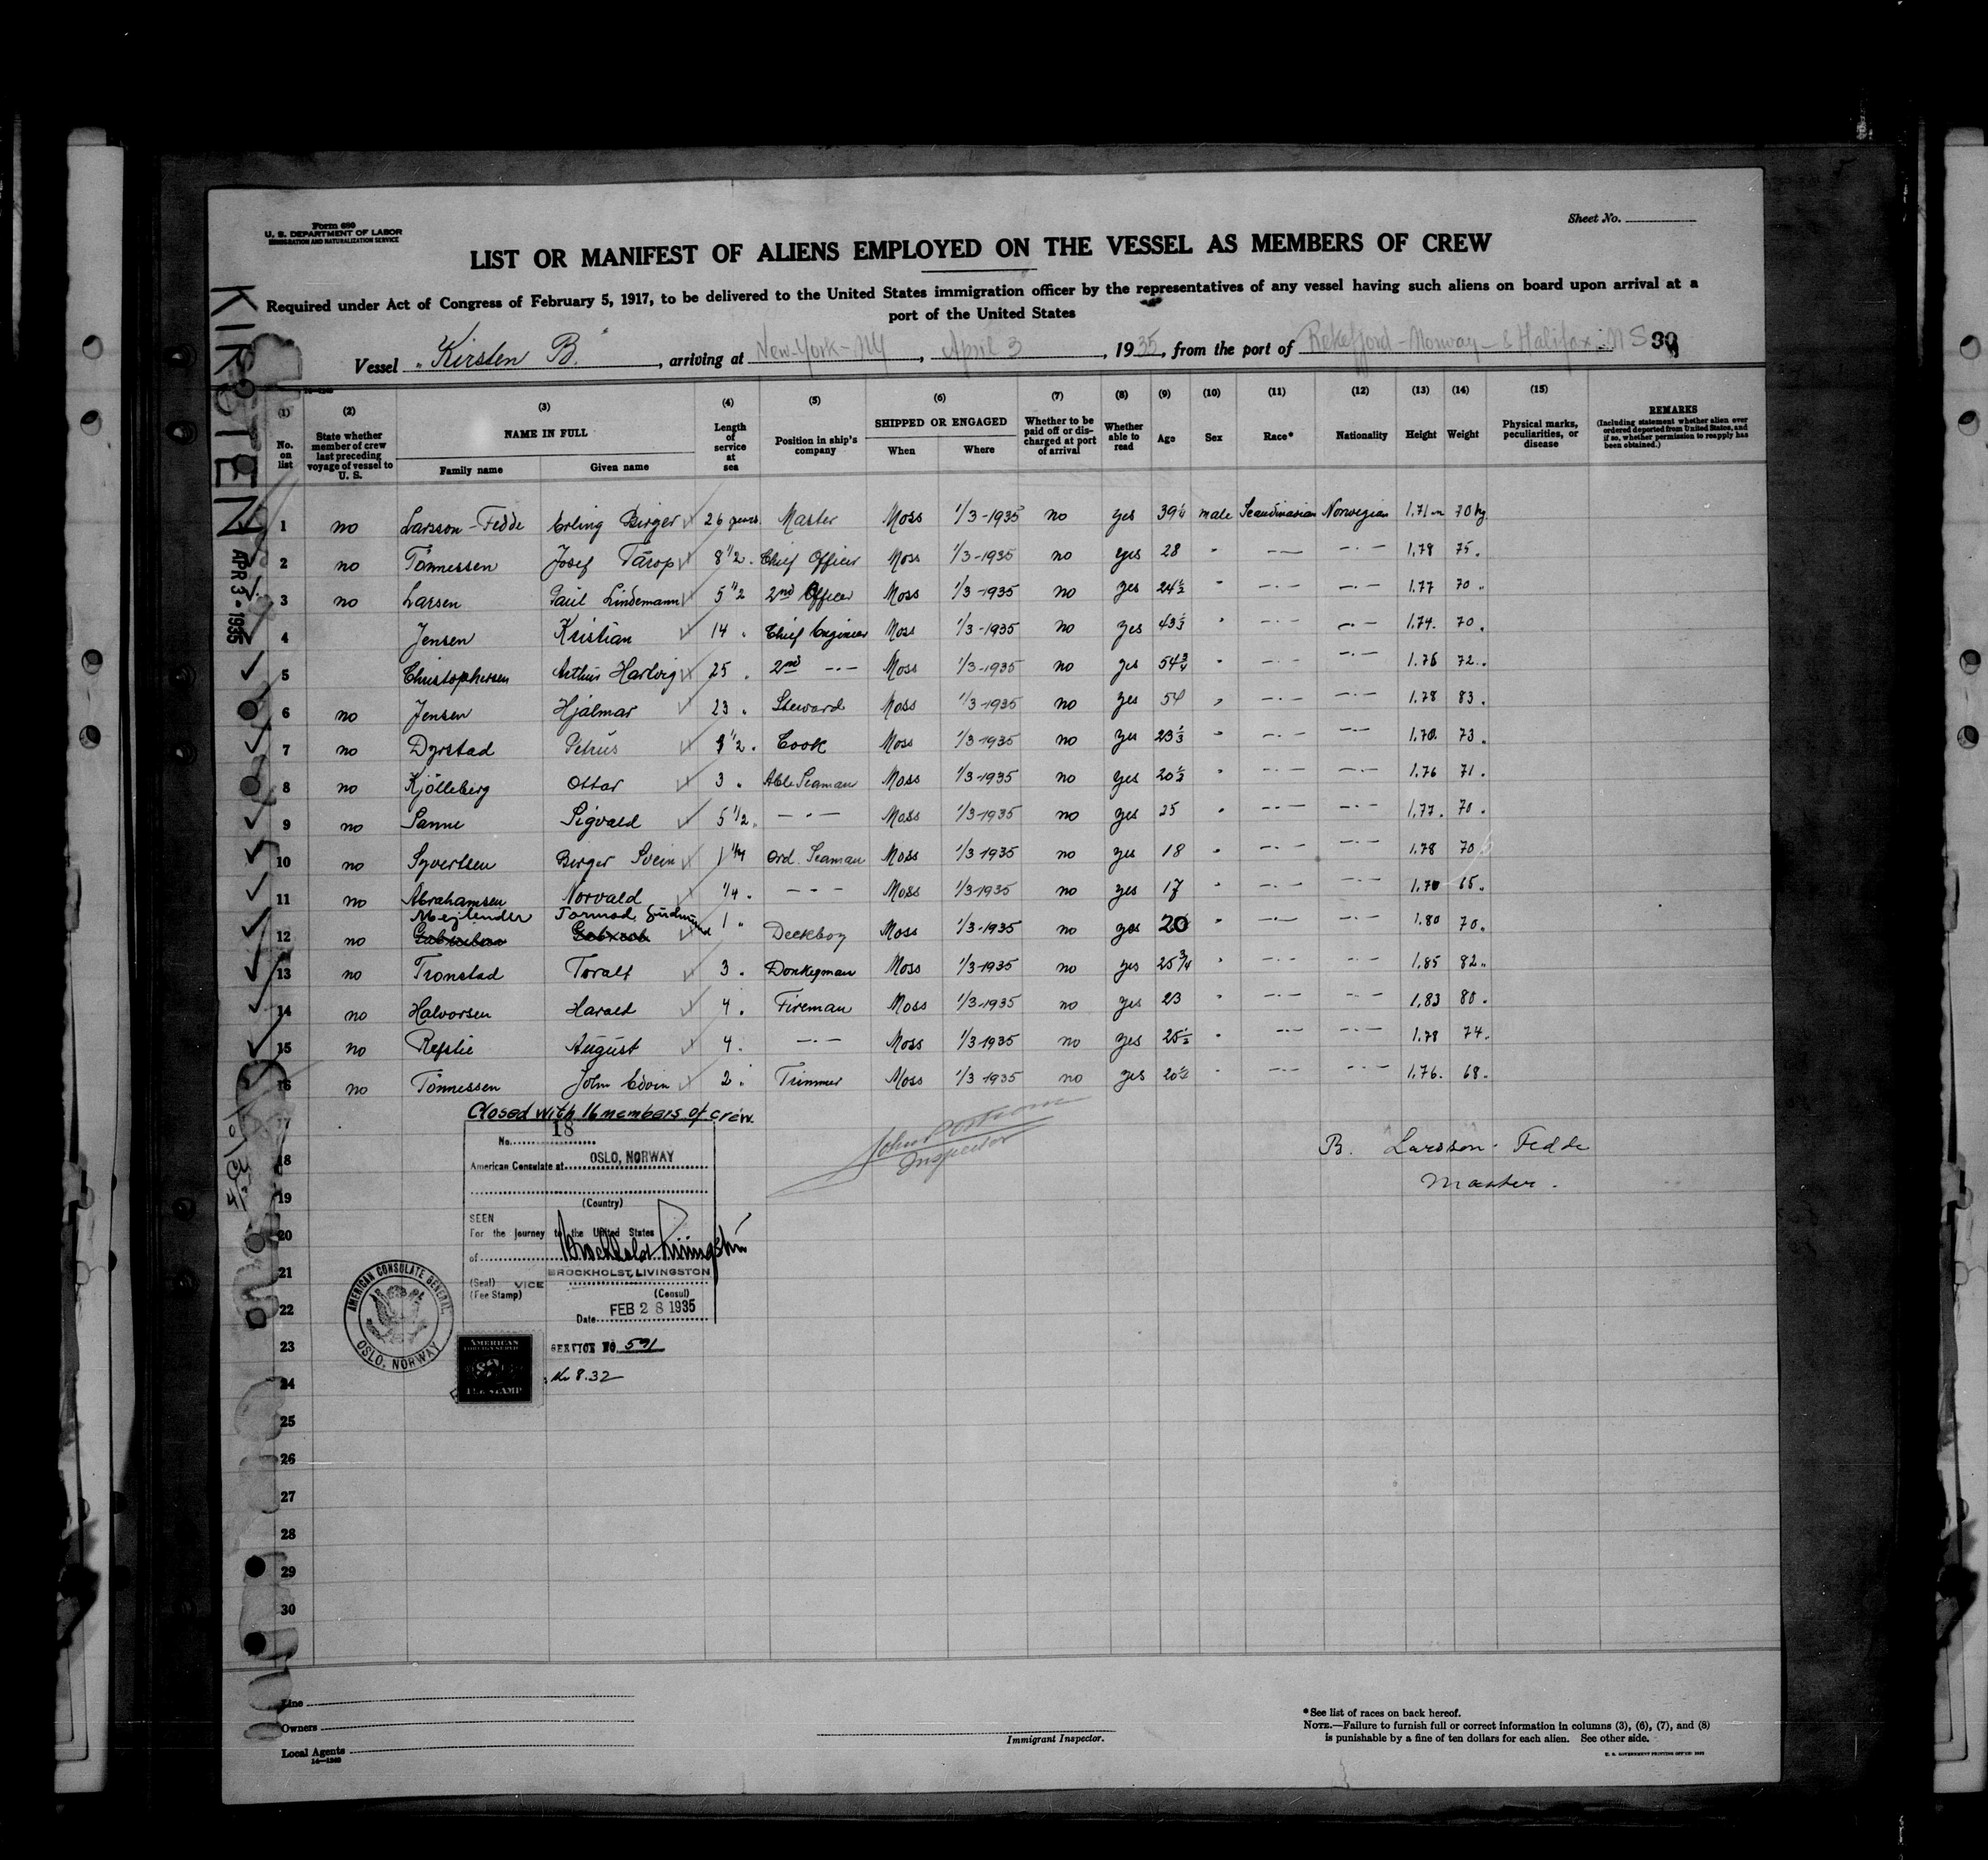 Form 680
U. S. DEPARTMENT OF LABOR
IMMIGRATION AND NATURALIZATION SERVICE
Sheet No.
LIST OR MANIFEST OF ALIENS EMPLOYED ON THE VESSEL AS MEMBERS OF CREW
Required under Act of Congress of February 5, 1917, to be delivered to the United States immigration officer by the representatives of any vessel having such aliens on board upon arrival at a
port of the United States
Vessel "Kirsten B.", arriving at New-York-NY, April 3, 1935, from the port of Rekefjord-Norway-& Halifax. N S
KIRSTEN
APR 3 - 1935
(1) (2) (3) (4) (5) (6) (7) (8) (9) (10) (11) (12) (13) (14) (15)
No. on list
State whether member of crew last preceding voyage of vessel to U. S.
NAME IN FULL
Family name Given name
Length of service at sea
Position in ship's company
SHIPPED OR ENGAGED
When Where
Whether to be paid off or discharged at port of arrival
Whether able to read
Age Sex Race* Nationality Height Weight
Physical marks, peculiarities, or disease
REMARKS
(Including statement whether alien ever ordered deported from United States, and if so, whether permission to reapply has been obtained.)
1 no Larsson-Fedde Erling Birger 26 years Master Moss 1/3-1935 no yes 39 1/4 male Scandinavian Norwegian 1.71 m 70 kg.
2 no Tönnessen Josef Tårop 8 1/2 " Chief Officer Moss 1/3-1935 no yes 28 " -"- -"- 1.78 75 "
3 no Larsen Paul Lindemann 5 1/2 2nd Officer Moss 1/3-1935 no yes 24 1/2 " -"- -"- 1.77 70 "
4 Jensen Kristian 14 " Chief Engineer Moss 1/3-1935 no yes 43 1/3 " -"- -"- 1.74. 70 "
5 Christophersen Arthur Hartvig 25 " 2nd -"- Moss 1/3-1935 no yes 54 3/4 " -"- -"- 1.76 72 "
6 no Jensen Hjalmar 23 " Steward Moss 1/3-1935 no yes 54 " -"- -"- 1.78 83 "
7 no Dyrstad Petrus 1/2 " Cook Moss 1/3-1935 no yes 23 1/3 " -"- -"- 1.70. 73 "
8 no Kjölleberg Ottar 3 " Able Seaman Moss 1/3-1935 no yes 20 1/2 " -"- -"- 1.76 71 "
9 no Sanne Sigvald 5 1/2 " -"- Moss 1/3-1935 no yes 25 " -"- -"- 1.77. 70 "
10 no Syvertsen Birger Svein 1 1/4 Ord. Seaman Moss 1/3 1935 no yes 18 " -"- -"- 1.78 70
11 no Abrahamsen Norvald 1/4 " -"- Moss 1/3-1935 no yes 17 " -"- -"- 1.70 65 "
Mejlender Tormod Gudmund
12 no 1 " Deckboy Moss 1/3-1935 no yes 20 " -"- -"- 1.80 70 "
13 no Tronstad Toralf 3 " Donkeyman Moss 1/3-1935 no yes 25 3/4 " -"- -"- 1.85 82 "
14 no Halvorsen Harald 4 " Fireman Moss 1/3-1935 no yes 23 " -"- -"- 1.83 80 "
15 no Refslie August 4 " -"- Moss 1/3-1935 no yes 25 1/2 " -"- -"- 1.78 74 "
16 no Tönnessen John Edvin 2 " Trimmer Moss 1/3 1935 no yes 20 1/2 " -"- -"- 1.76. 68 "
Closed with 16 members of crew.
17
No. 18
18
American Consulate at OSLO, NORWAY
Inspector
B. Larsson-Fedde
Master.
19
(Country)
SEEN
20
For the journey to the United States
of
21
BROCKHOLST LIVINGSTON
(Seal) VICE (Consul)
(Fee Stamp)
22
Date FEB 28 1935
AMERICAN CONSULATE GENERAL.
OSLO, NORWAY
23
SERVICE NO 591
AMERICAN
FOREIGN SERVICE
FEE STAMP
Kr 8.32
24
25
26
27
28
29
30
Line
Owners
Local Agents
14—1240
Immigrant Inspector.
*See list of races on back hereof.
NOTE.—Failure to furnish full or correct information in columns (3), (6), (7), and (8)
is punishable by a fine of ten dollars for each alien. See other side.